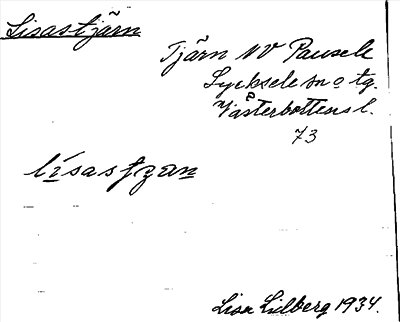 Lisastjärn
Tjärn NV Pausele
Lycksele sn o tg.
Västerbottens l.
73
lisastzan
Lisa Lidberg 1934.